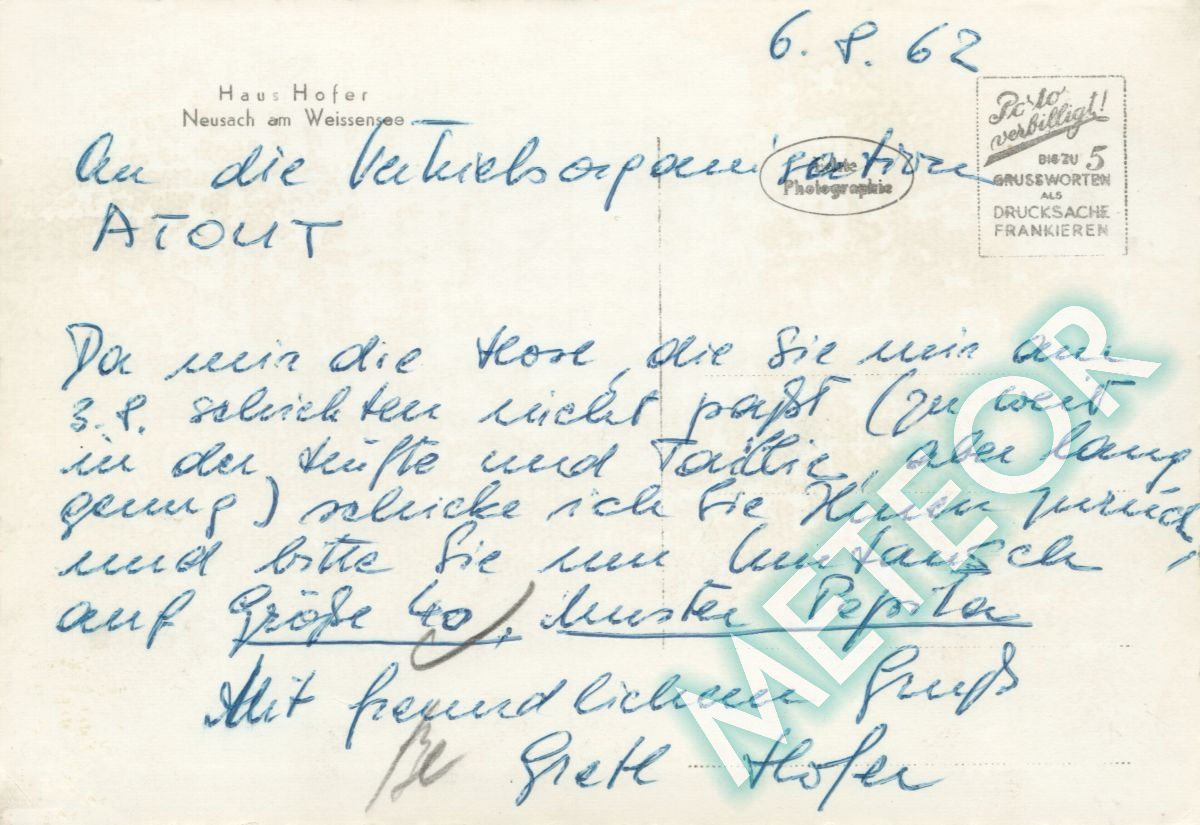 6. 8. 62
Haus Hofer
Neusach am Weissensee
Porto
verbilligt!
BIS ZU 5
GRUSSWORTEN
ALS
DRUCKSACHE
FRANKIEREN
Echte
Photographie
An die Vertriebsorganisation
ATOUT
Da mir die Hose, die Sie mir am
3.8. schickten nicht paßt (zu weit
in der Hüfte und Taillie, aber lang
genug) schicke ich Sie Ihnen zurück
und bitte Sie um Umtausch,
auf Größe 40, Muster Pepita
Mit freundlichem Gruß
Gretl Hofer
METEOR